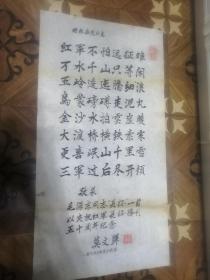 红軍不怕远征难
万水千山只等闲
五岭逶迤腾细浪
乌蒙磅礴走泥丸
金沙水拍云崖暖
大渡桥横铁索寒
更喜岷山千里雪
三军过后尽开颜
敬录
毛泽东同志長征一首
以庆祝红軍長征胜利
五十周年纪念
莫文骅